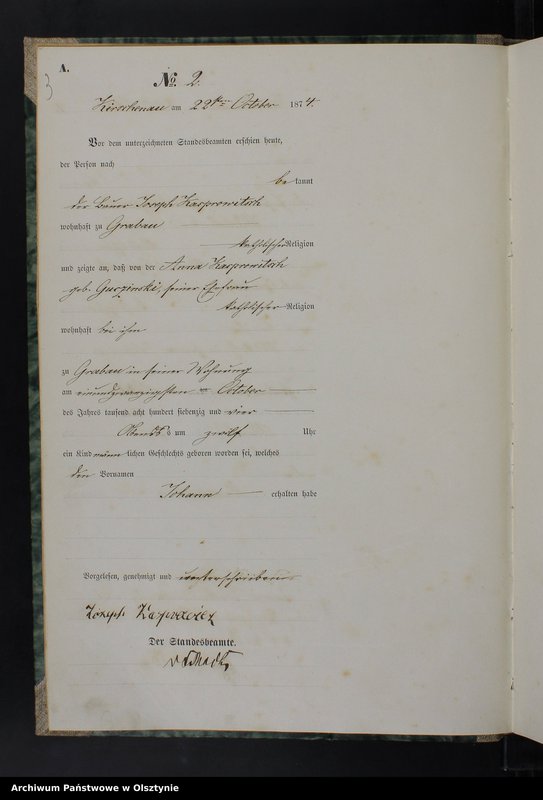 A.
3
No. 2.
Kirschenau am 22ten October 1874.
Vor dem unterzeichneten Standesbeamten erschien heute,
der Person nach
be kannt
der Bauer Joseph Kasprowitsch
wohnhaft zu Grabau
katholischer Religion
und zeigte an, daß von der Anna Kasprowitsch
geb. Guczinski, seiner Ehefrau
katholischer Religion
wohnhaft bei ihm
zu Grabau in seiner Wohnung
am einundzwanzigsten October
des Jahres tausend acht hundert siebenzig und vier
Abends um zwölf Uhr
ein Kind männlichen Geschlechts geboren worden sei, welches
den Vornamen
Johann erhalten habe
Vorgelesen, genehmigt und unterschrieben
Joseph
Der Standesbeamte.
Archiwum Państwowe w Olsztynie